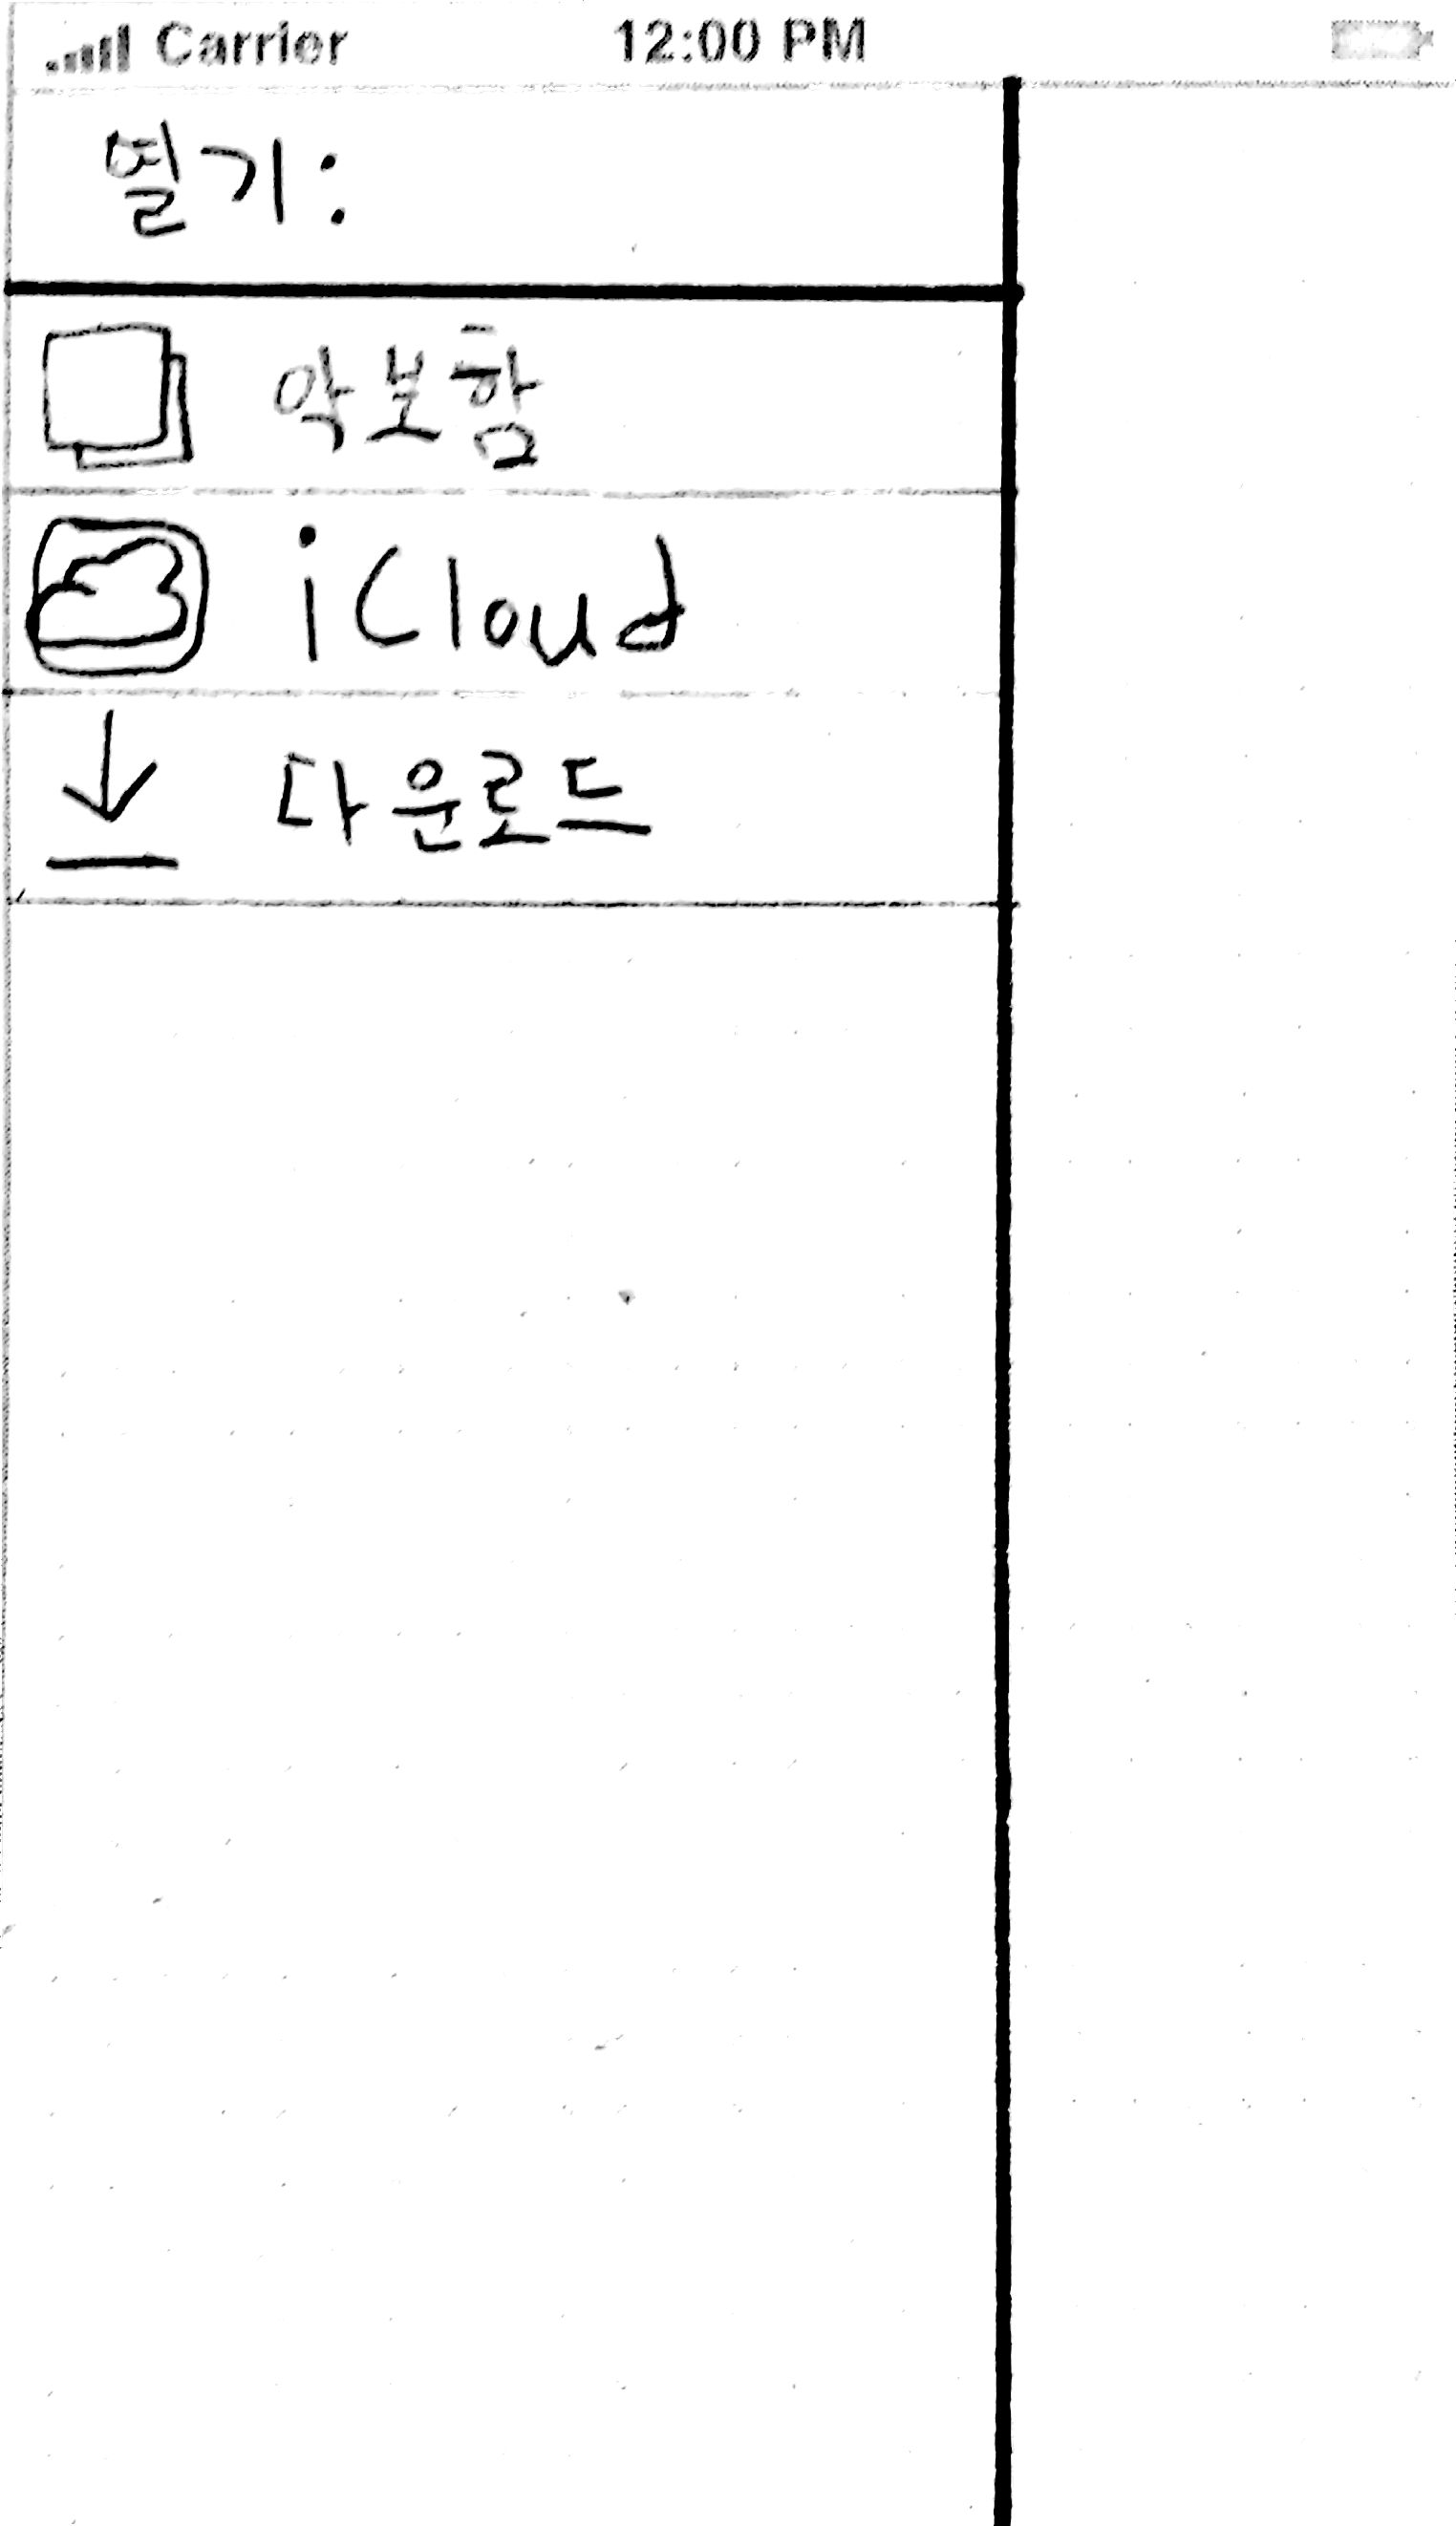 Carrier 12:00 PM
열기:
악보함
iCloud
다운로드